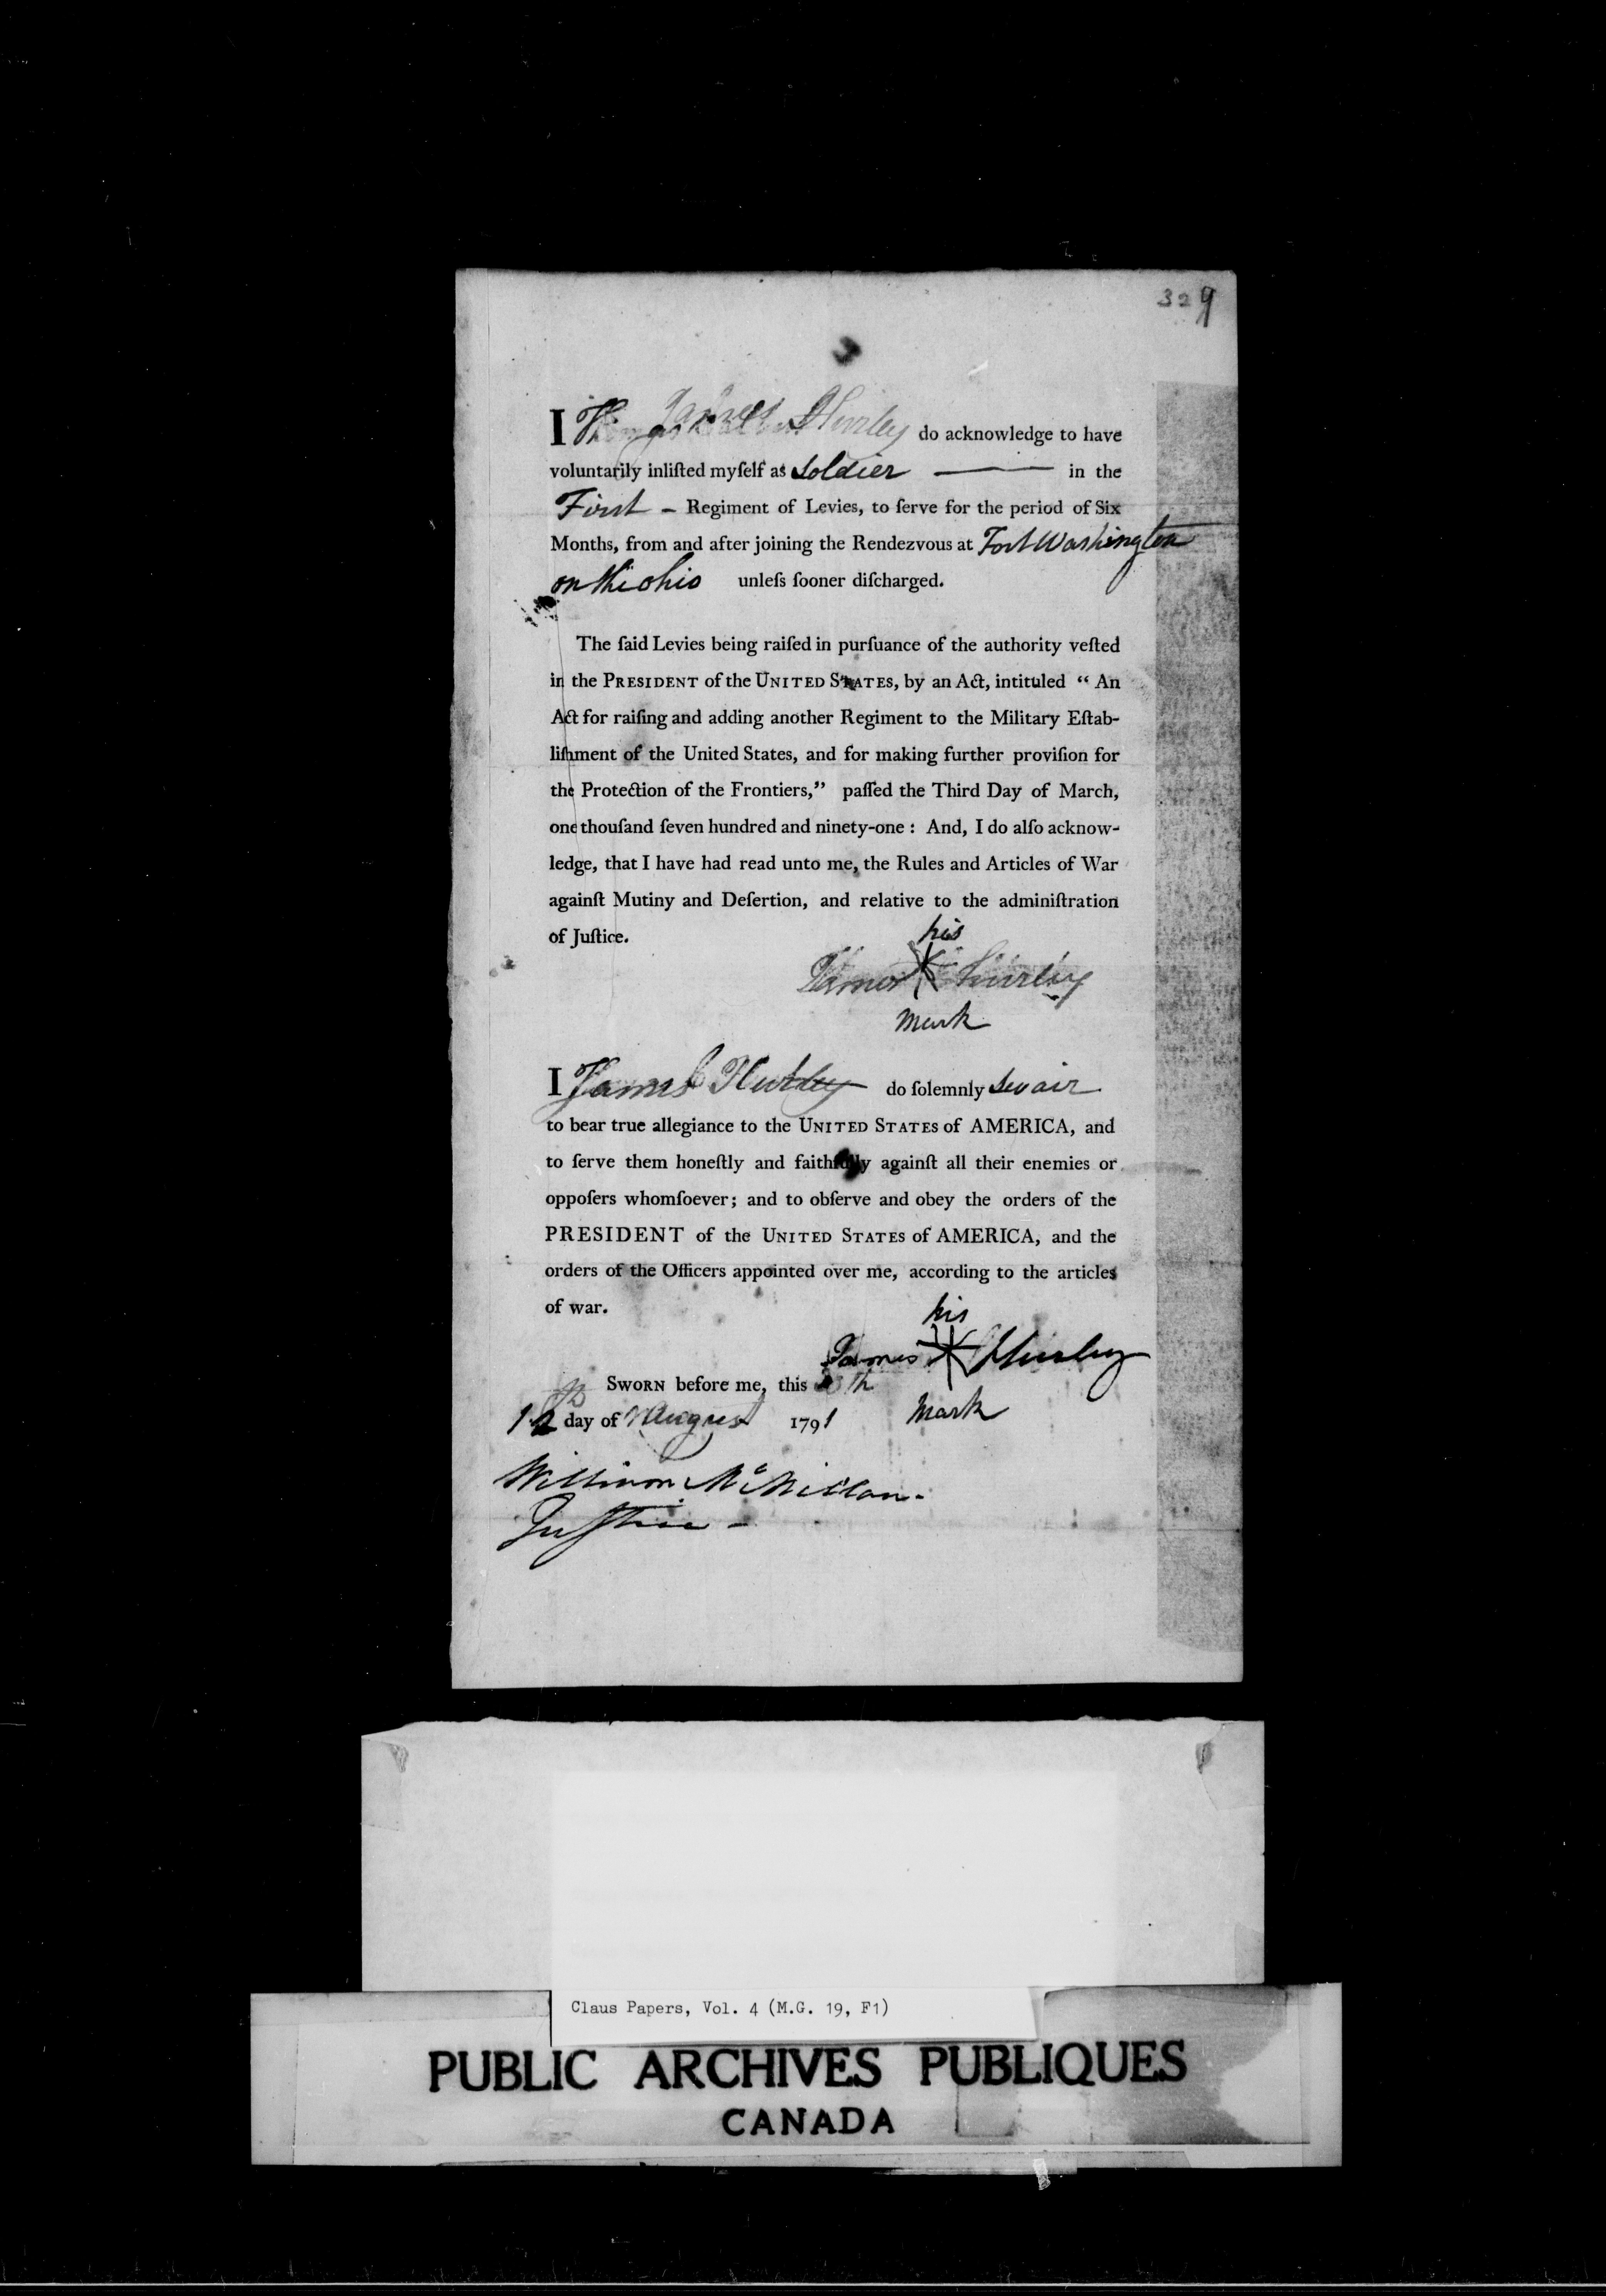 329
I James Hurley do acknowledge to have
voluntarily inliſted myſelf as Soldier — in the
First – Regiment of Levies, to ſerve for the period of Six
Months, from and after joining the Rendezvous at Fort Washington
on the ohio unleſs ſooner diſcharged.
The ſaid Levies being raiſed in purſuance of the authority veſted
in the PRESIDENT of the UNITED STATES, by an Act, intituled “ An
Act for raiſing and adding another Regiment to the Military Eſtab-
liſhment of the United States, and for making further proviſion for
the Protection of the Frontiers,” paſſed the Third Day of March,
one thouſand ſeven hundred and ninety-one : And, I do alſo acknow-
ledge, that I have had read unto me, the Rules and Articles of War
againſt Mutiny and Deſertion, and relative to the adminiſtration
of Juſtice.
his
James Hurley
mark
I James Hurley do ſolemnly Swair
to bear true allegiance to the UNITED STATES of AMERICA, and
to ſerve them honeſtly and faithfully againſt all their enemies or
oppoſers whomſoever; and to obſerve and obey the orders of the
PRESIDENT of the UNITED STATES of AMERICA, and the
orders of the Officers appointed over me, according to the articles
of war.
his
James Hurley
mark
SWORN before me, this
12th day of August 1791
William McMillan.
Juſtice –
Claus Papers, Vol. 4 (M.G. 19, F1)
PUBLIC ARCHIVES PUBLIQUES
CANADA